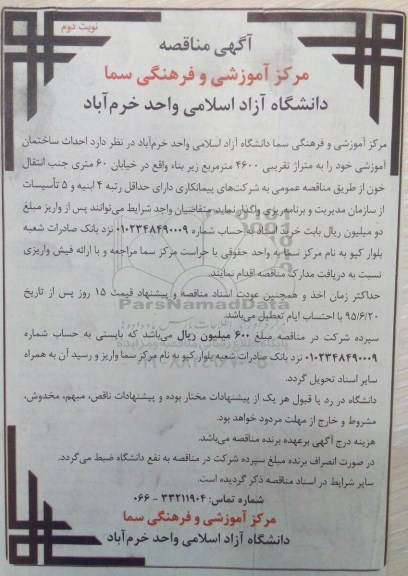 نوبت دوم
آگهی مناقصه
مرکز آموزشی و فرهنگی سما
دانشگاه آزاد اسلامی واحد خرم‌آباد
مرکز آموزشی و فرهنگی سما دانشگاه آزاد اسلامی واحد خرم‌آباد در نظر دارد احداث ساختمان
آموزشی خود را به متراژ تقریبی ۴۶۰۰ مترمربع زیر بناء واقع در خیابان ۶۰ متری جنب انتقال
خون از طریق مناقصه عمومی به شرکت‌های پیمانکاری دارای حداقل رتبه ۴ ابنیه و ۵ تأسیسات
از سازمان مدیریت و برنامه‌ریزی واگذار نماید. متقاضیان واجد شرایط می‌توانند پس از واریز مبلغ
دو میلیون ریال بابت خرید اسناد به حساب شماره ۰۱۰۲۳۴۸۴۹۰۰۰۹ نزد بانک صادرات شعبه
بلوار کیو به نام مرکز سما به واحد حقوقی یا حراست مرکز سما مراجعه و با ارائه فیش واریزی
نسبت به دریافت مدارک مناقصه اقدام نمایند.
ParsNamadData
حداکثر زمان اخذ و همچنین عودت اسناد مناقصه و پیشنهاد قیمت ۱۵ روز پس از تاریخ
۹۵/۶/۲۰ با احتساب ایام تعطیل می‌باشد.
سپرده شرکت در مناقصه مبلغ ۶۰۰ میلیون ریال می‌باشد که بایستی به حساب شماره
۰۱۰۲۳۴۸۴۹۰۰۰۹ نزد بانک صادرات شعبه بلوار کیو به نام مرکز سما واریز و رسید آن به همراه
سایر اسناد تحویل گردد.
دانشگاه در رد یا قبول هر یک از پیشنهادات مختار بوده و پیشنهادات ناقص، مبهم، مخدوش،
مشروط و خارج از مهلت مردود خواهد بود.
هزینه درج آگهی برعهده برنده مناقصه می‌باشد.
در صورت انصراف برنده مبلغ سپرده شرکت در مناقصه به نفع دانشگاه ضبط می‌گردد.
سایر شرایط در اسناد مناقصه ذکر گردیده است.
شماره تماس: ۳۳۲۱۱۹۰۴ - ۰۶۶
مرکز آموزشی و فرهنگی سما
دانشگاه آزاد اسلامی واحد خرم‌آباد